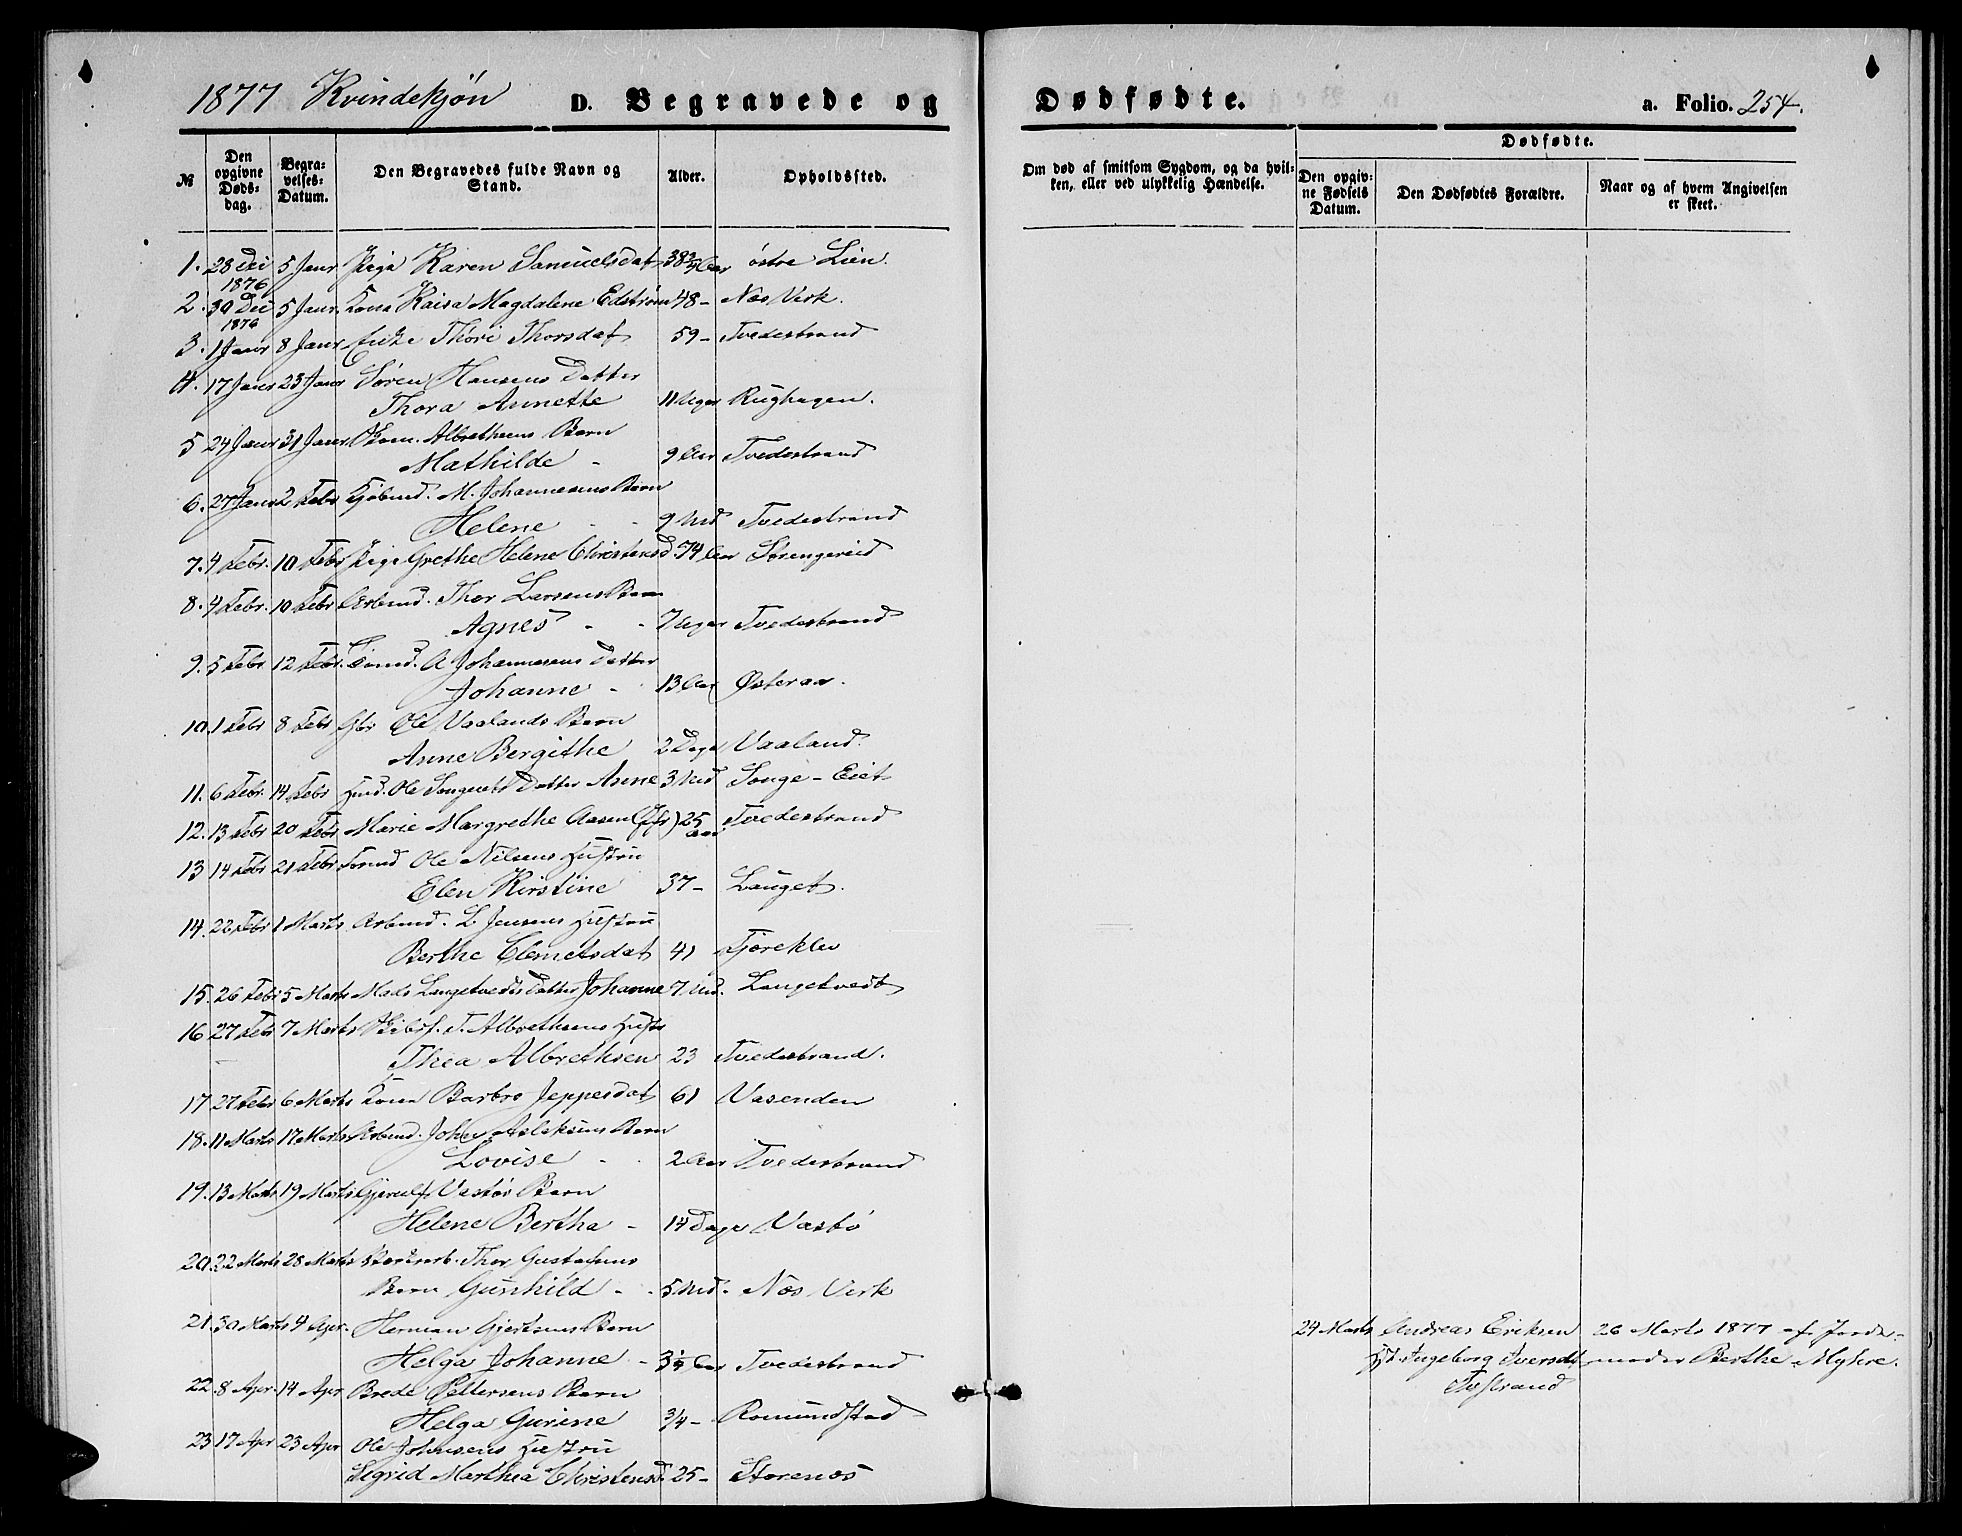 1877 Kvindekjön D. Begravede og Dødfødte. a. Folio. 254.
№ Den opgivne Døds-dag. Begra-velses-Datum. Den Begravedes fulde Navn og Stand. Alder. Opholdssted. Om død af smitsom Sygdom, og da hvil-ken, eller ved ulykkelig Hændelse. Dødfødte. Den opgiv-ne Fødsels Datum. Den Dødfødtes Forældre. Naar og af hvem Angivelsen er skeet.
1. 28 Dei 5 Janr Pige Karen Samuelsdat 38 Aar østre Lien.
1876
2. 30 Dei 5 Janr. Kona Kaisa Magdalene Edström 48 - Næs Verk.
1876
3. 1 Janr 8 Janr Enke Thöri Thorsdat 59 - Tvedestrand
4. 17 Janr 23 Janr Sören Hansens Datter
Thora Annette 11 Uger Rughagen.
5 24 Janr 31 Janr Albrethsens Barn
Mathilde - 9 Aar Tvedestrand
6. 27 Janr 2 Febr Kjöbmd. M. Johannesens Barn
Helene - - 9 Md Tvedestrand
7. 4 Febr. 10 Febr Pige Grethe Helene Christensd 74 Aar Sörengereid
8. 4 Febr. 10 Febr Arbmd. Thor Larsens Barn
Agnes - - 7 Uger Tvedestrand
9. 5 Febr 12 Febr. A Johannesens Datter
Johanne - 13 Aar Østeraa.
10. 1 Febr 8 Febr Gbr Ole Vaalands Barn
Anne Bergithe 2 Dage Vaaland.
11. 6 Febr. 14 Febr Hmd. Ole Songeeets Datter Anne 3 Md Songe - Eiet
12. 13 Febr 20 Febr Marie Margrethe Aasen 25 Aar Tvedestrand
13 14 Febr 21 Febr Ole Nilsens Hustru
Elen Kirstine 37 - Lauget.
14. 22 Febr 1 Marts Arbmd. L Jensens Hustru
Berthe Clemetsdat 41 Fjæreklev
15. 26 Febr 5 Marts Mads Langetvedts Datter Johanne 7 Md. Langetvedt
16 27 Febr 7 Marts Skibsf. T. Albrethsens Hustr
Thea Albrethsen 23 Tvedestrand.
17 27 Febr 6 Marts Kona Barbro Jeppesdat 61 Vasenden
18. 11 Marts 17 Marts Arbmd. Johan Aslaksens Barn
Lovise - 2 Aar Tvedestrand
19. 13 Marts 19 Marts Gjeruld Vastös Barn
Helene Bertha - 14 Dage Vastö
20. 22 Marts 28 Marts Thor Gustafsens
Barn Gunhild - - 5 Md. Næs Verk
21. 30 Marts 4 Apr. Herman Gjertsens Barn 24 Marts Andreas Eriksen 26 Marts 1877 af Jorde-
Helga Johanne - 3½ Aar Tvedestrand Ingeborg Iversdt moder Berthe Myhre.
22. 8 Apr. 14 Apr Brede Pettersens Barn Tvstrand
Helga Gurine 3/4 - Romundstad
23 17 Apr 23 Apr Ole Johnsens Hustru
Sigrid Marthea Christensd. 25 - Storenæs